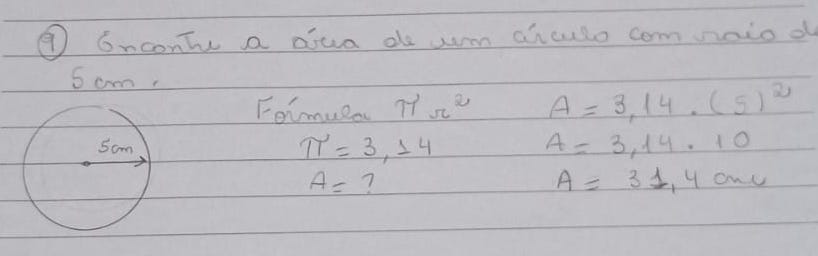 9 Encontre a área de um círculo com raio d
5 cm.
5cm
Fórmula π r²
π = 3,14
A = ?
A = 3,14 . (5)²
A = 3,14 . 10
A = 31,4